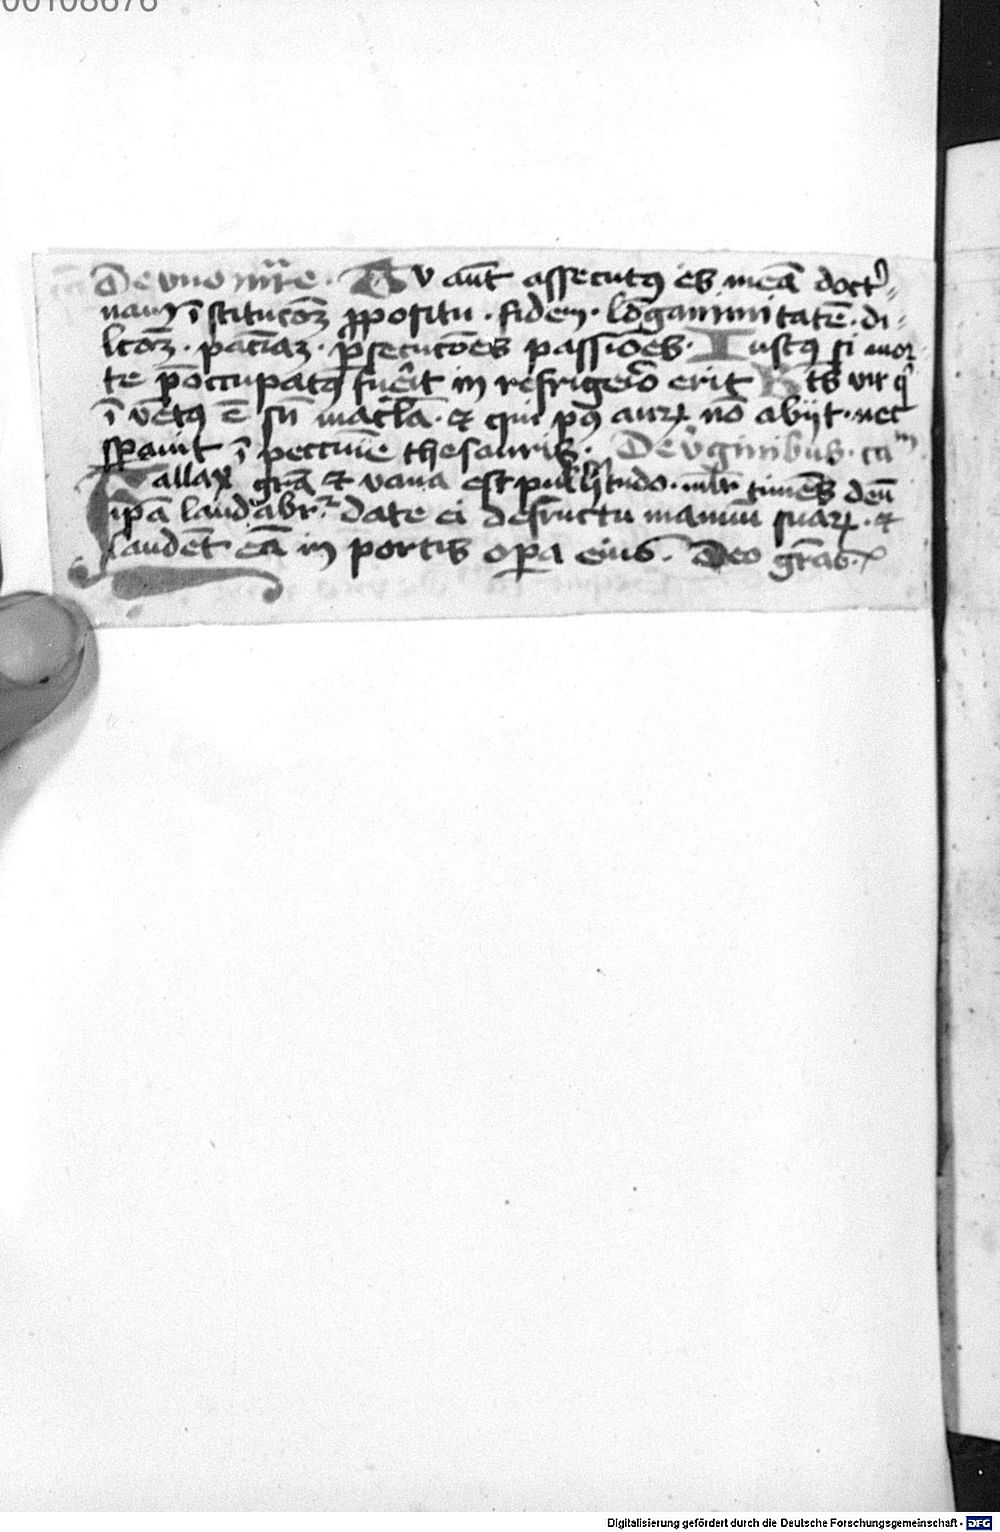 00108676
De uno mr̄e · Tv aūt assecutꝯ es meā doctͥ
nam ī stitucōꝫ ꝓpositū · fidem · lōganimitatē · di
lcōꝫ · paciāꝫ · ꝑsecucōes passiōes · Iustꝯ si mor
te p̄occupatꝯ fuērit in refrigerio erit Bt̄s vir qͥ
ī vētꝯ ē sn̄ macl̄a · et qui pꝯ aurꝝ nō abijt · nec
sꝑauit ī peccunie thesauris · De vͥginibus · ca
Fallax grā et vana est pulcͥtudo · ml̄r timēs deū
ip̄a laudabr̄ · date ei de fructu manuū suarꝝ · et
laudēt eā in portis oꝑa eius · Deo grās
Digitalisierung gefördert durch die Deutsche Forschungsgemeinschaft - DFG